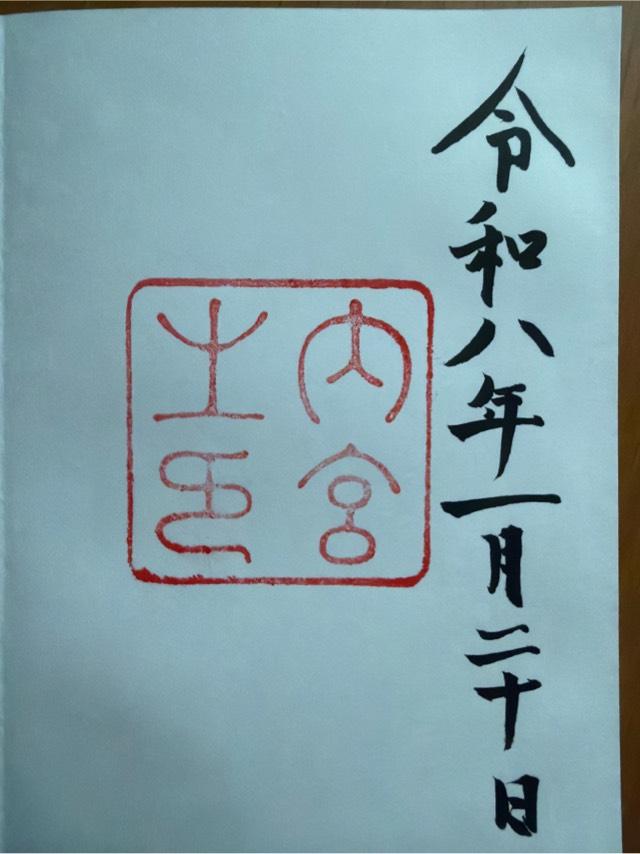 令和八年一月二十日
内宮
之印